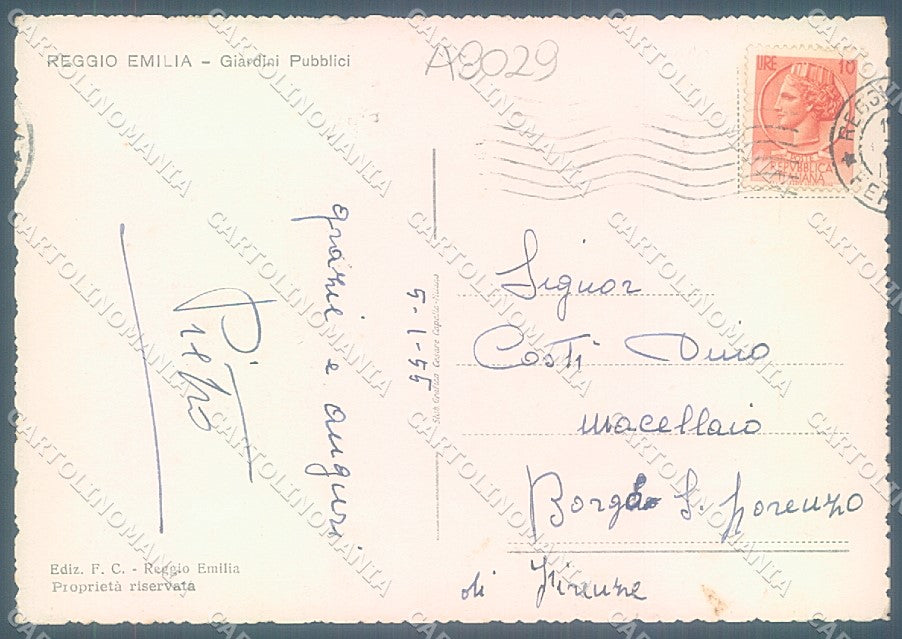 REGGIO EMILIA – Giardini Pubblici
A9029
LIRE 10
POSTE
REPVBBLICA
ITALIANA
REGG
grazie e auguri
Pietro
5-1-55
Signor
Costi Dino
macellaio
Borgo S. Lorenzo
di Firenze
Ediz. F. C. - Reggio Emilia
Proprietà riservata
CARTOLINOMANIA